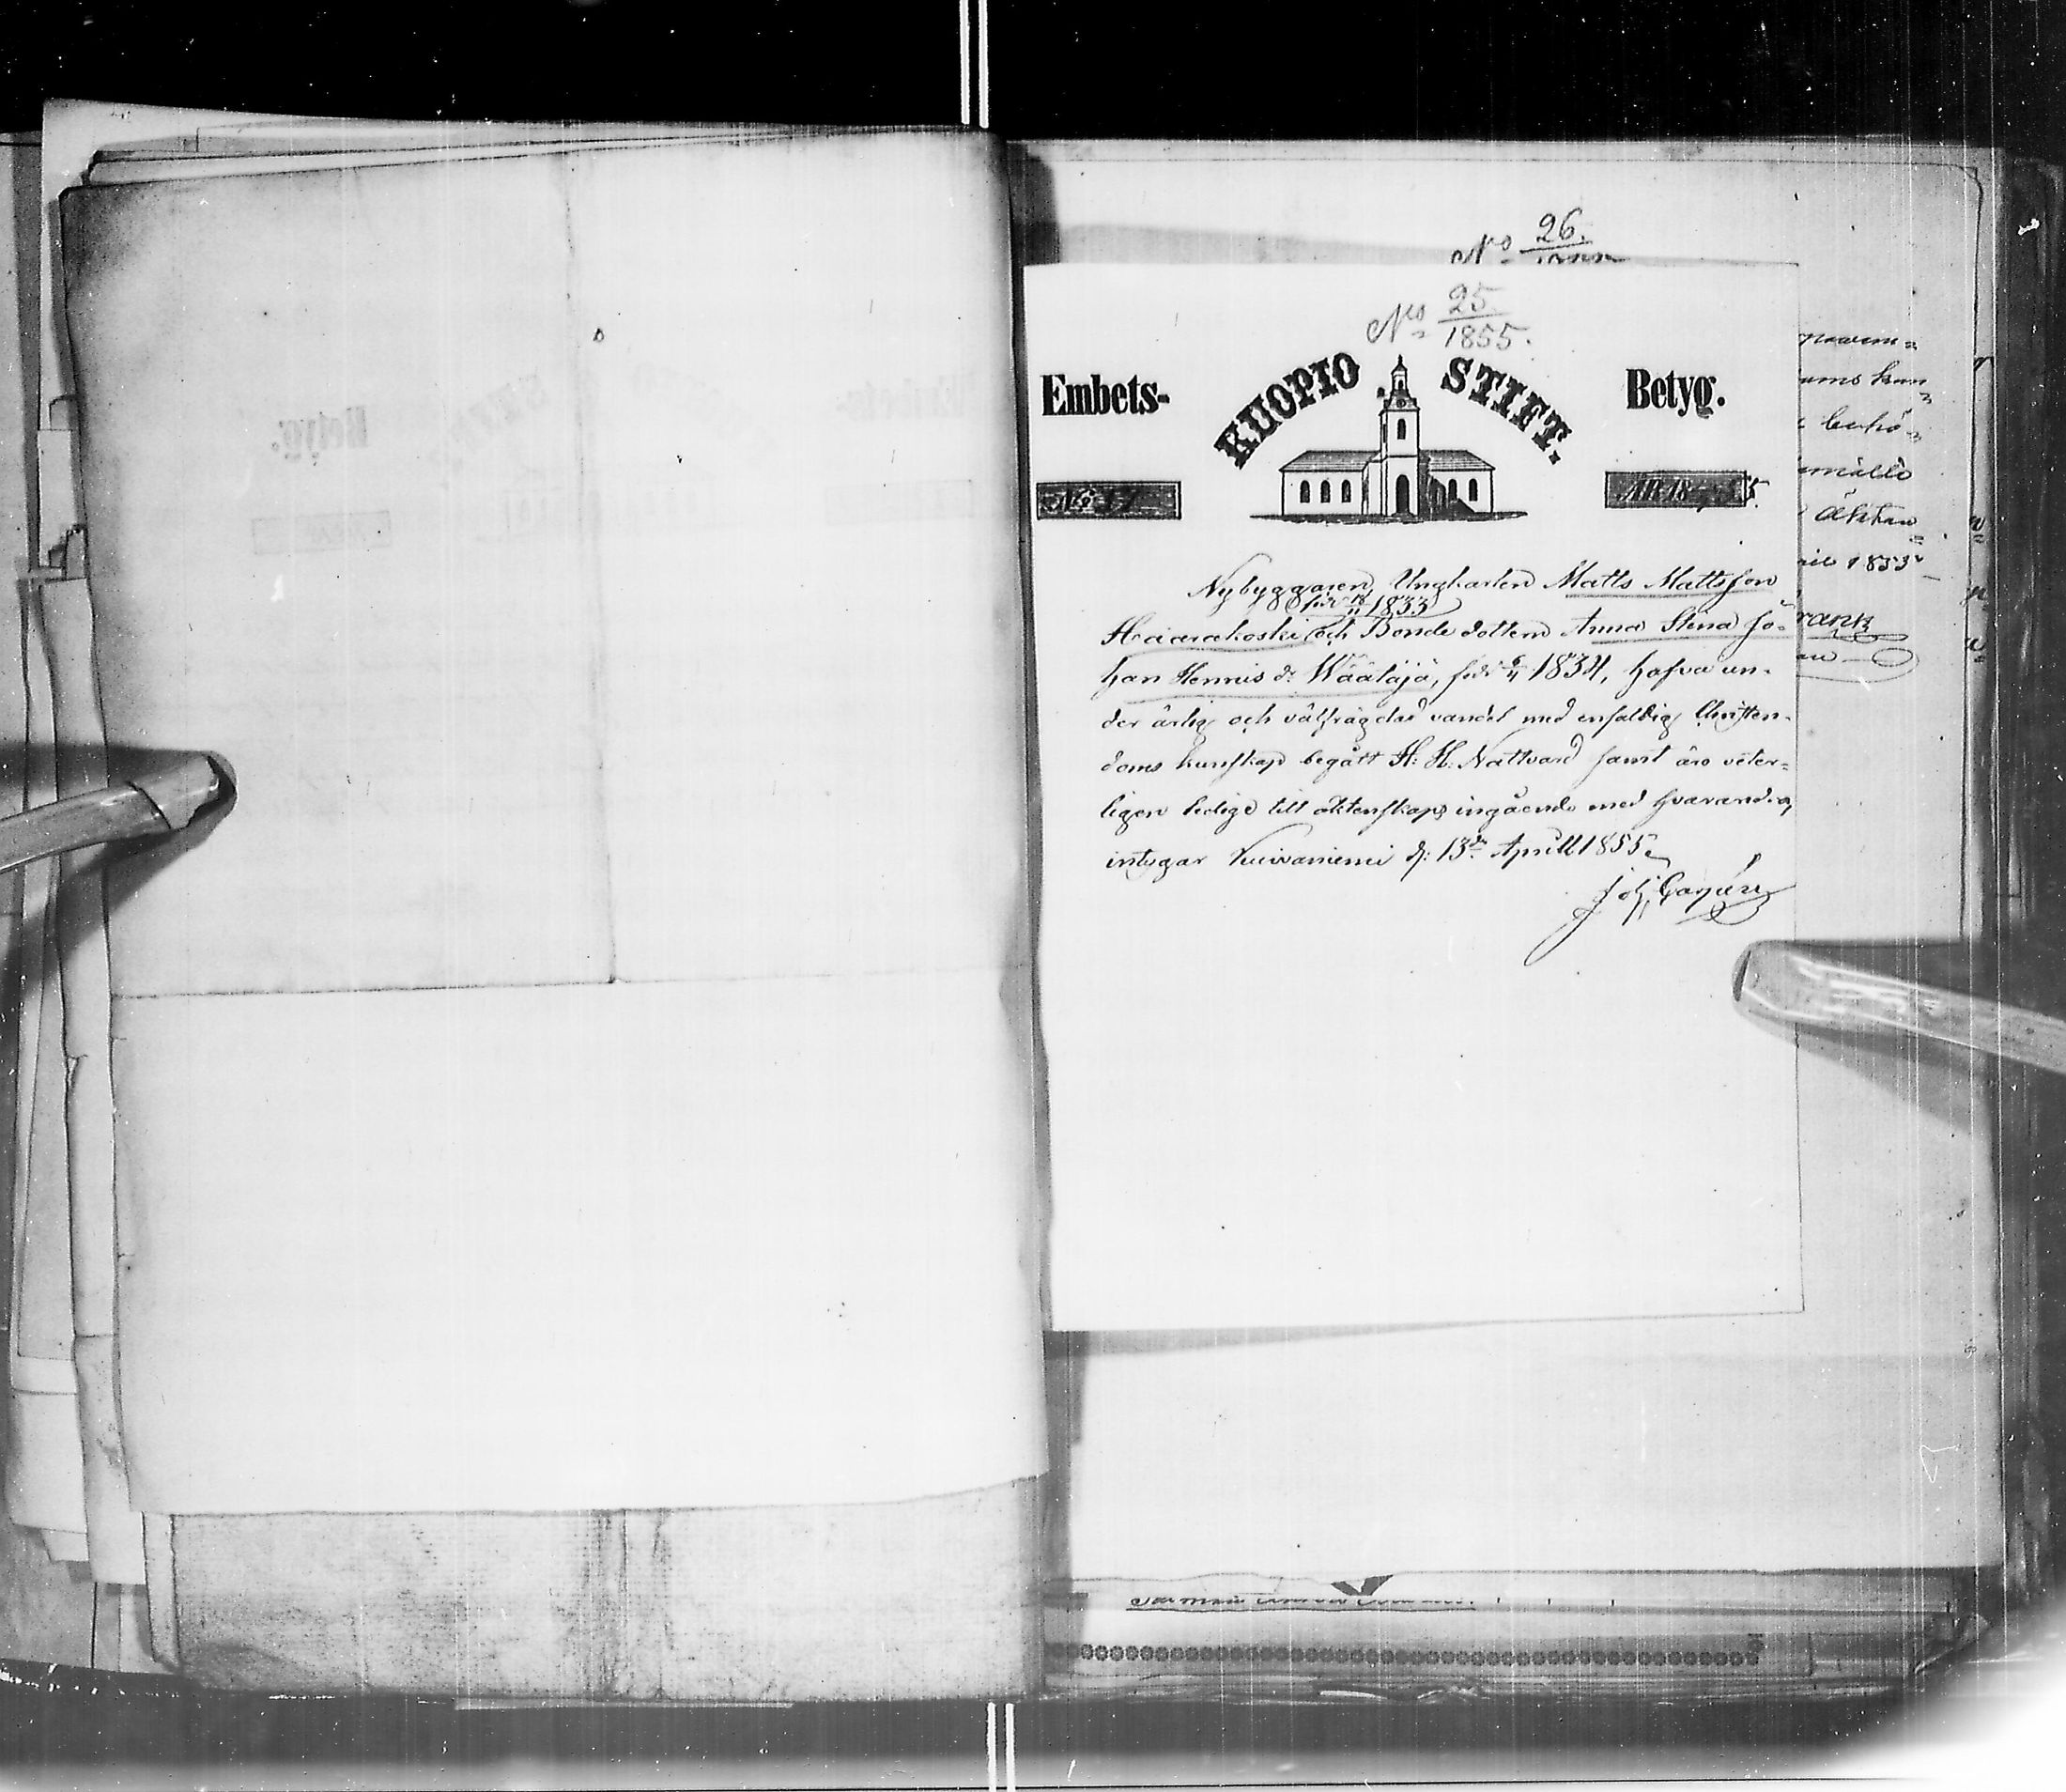 No 26.
No 25
1855.
Embets- KUOPIO STIFT. Betyg.
No 17 ÅR 1855.
Nybyggaren Ungkarlen Matts Mattsson
född 18/11 1833
Haarakoski och Bonde dottern Anna Stina Jo-
han Henriks dr Wäätäjä, född 6/11 1834, hafva un-
der ärlig och välfrägdad vandel med enfaldig Christen-
doms kunskap begått H. H. Nattvard samt äro veter-
ligen ledige till äktenskaps ingående med hvarandra,
intygar Kuivaniemi d. 13de Aprill 1855.
Joh Gargén
ums kun
behö-
Äktan
1855